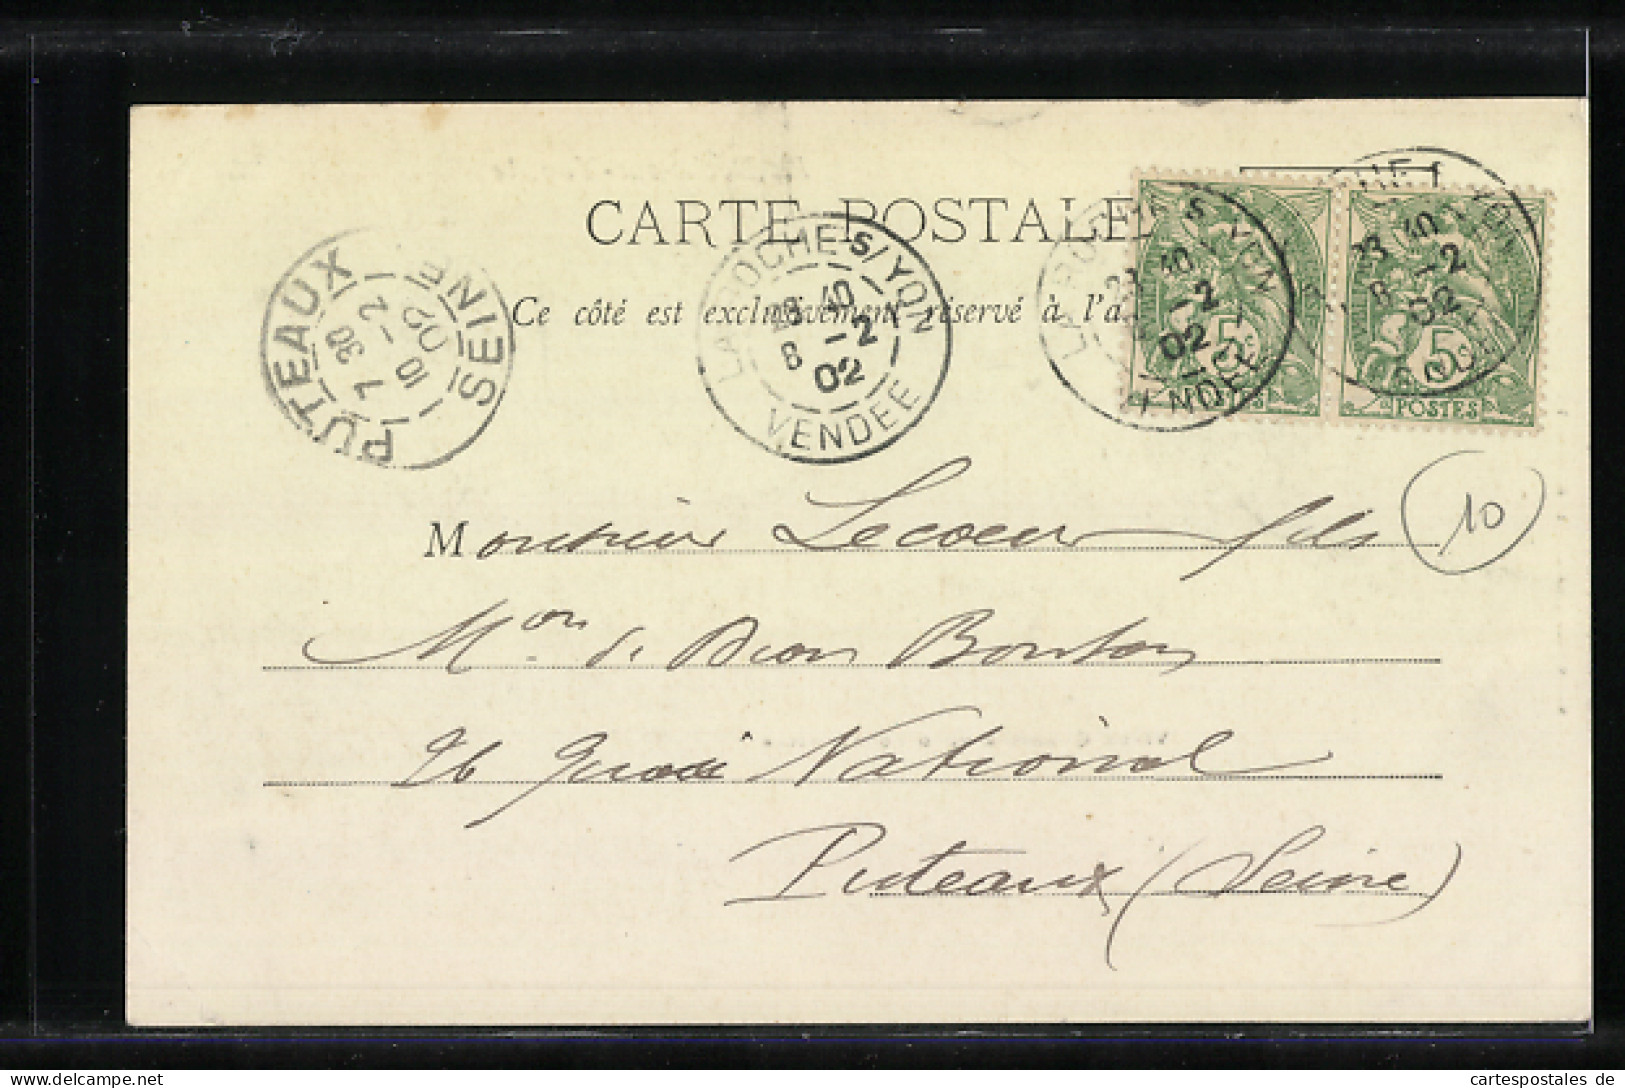 CARTE POSTALE
Ce côté est exclusivement réservé à l'a
PUTEAUX SEINE
7 30
10 -2
02
LA ROCHE S/YON
23 40
8 -2
02
VENDEE
LA ROCHE S/YON
23 40
8 -2
02
VENDEE
23 40
8 -2
02
5c
POSTES
5c
POSTES
10
Monsieur Lecoeur fils
Mon de Dion Bouton
36 Quai National
Puteaux (Seine)
cartespostales de